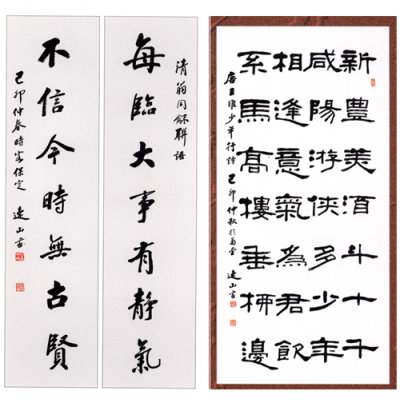 清翁同龢聯語
每臨大事有静氣
不信今時無古賢
己卯仲春時客保定
山書
新豐美酒斗十千
咸陽游俠多少年
相逢意氣為君飲
系馬高樓垂柳邊
唐王維少年行詩 己卯仲秋於 山書